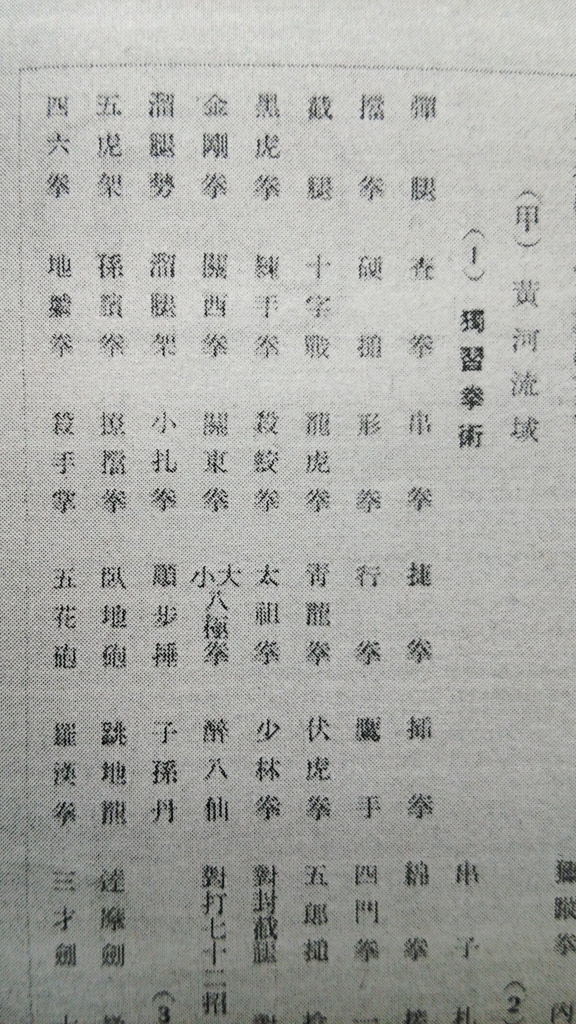 （甲）黃河流域 （2
（1）獨習拳術 串子
彈腿 查拳 串拳 捷拳 插拳 綿拳
擋拳 形拳 行拳 鷹手 四門拳
截腿 十字戰 龍虎拳 青龍拳 伏虎拳 五郎搥
黑虎拳 練手拳 殺鮫拳 太祖拳 少林拳 對封截腿
金剛拳 關西拳 關東拳 大小八極拳 醉八仙 對打七十二招
溜腿勢 溜腿架 小扎拳 順步捶 子孫丹 （3
五虎架 孫臏拳 撩擋拳 臥地砲 跳地龍 達摩劍
四六拳 地拳 殺手掌 五花砲 羅漢拳 三才劍